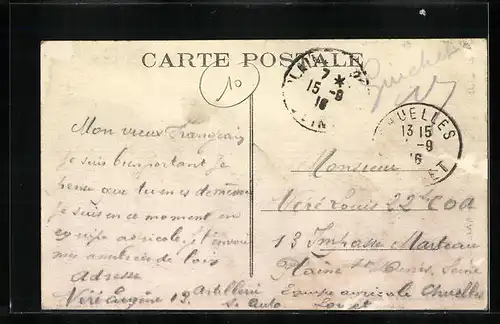 CARTE POSTALE
10
Guichet
7 *
15 - 9
16
CHUELLES
13 15
-9
16
Mon vieux
je suis bien portant je
pense que tu es de même
Je suis en ce moment en
equipe agricole, je t'envoie
mes amitiés de loin
Adresse
Véré Eugène 13. Artillerie
Monsieur
Véré Louis 22e COA
13 Impasse Marteau
Plaine St Denis, Seine
Equipe agricole Chuelles
Loiret